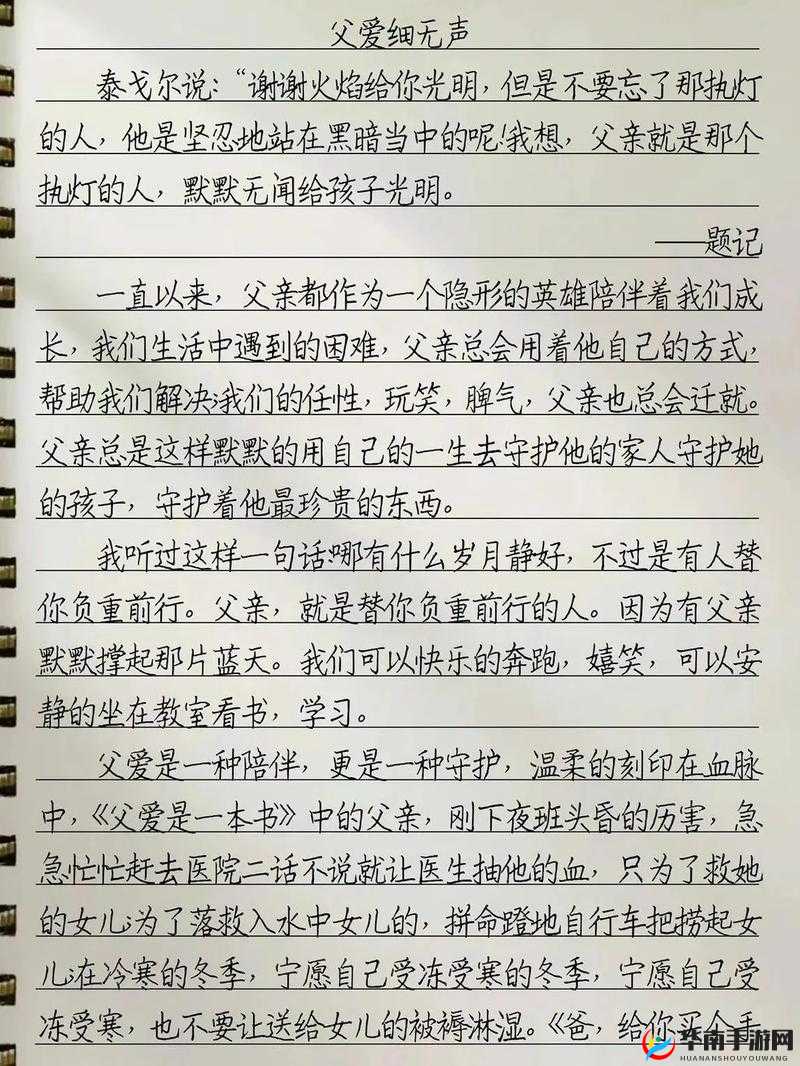 父爱细无声
泰戈尔说:“谢谢火焰给你光明,但是不要忘了那执灯
的人,他是坚忍地站在黑暗当中的呢!我想,父亲就是那个
执灯的人,默默无闻给孩子光明。
——题记
一直以来,父亲都作为一个隐形的英雄陪伴着我们成
长,我们生活中遇到的困难,父亲总会用着他自己的方式,
帮助我们解决;我们的任性,玩笑,脾气,父亲也总会迁就。
父亲总是这样默默的用自己的一生去守护他的家人守护她
的孩子,守护着他最珍贵的东西。
我听过这样一句话:哪有什么岁月静好,不过是有人替
你负重前行。父亲,就是替你负重前行的人。因为有父亲
默默撑起那片蓝天。我们可以快乐的奔跑,嬉笑,可以安
静的坐在教室看书,学习。
父爱是一种陪伴,更是一种守护,温柔的刻印在血脉
中,《父爱是一本书》中的父亲,刚下夜班头昏的历害,急
急忙忙赶去医院二话不说就让医生抽他的血,只为了救她
的女儿;为了落救入水中女儿的,拼命蹬地自行车把捞起女
儿;在冷寒的冬季,宁愿自己受冻受寒的冬季,宁愿自己受
冻受寒,也不要让送给女儿的被褥淋湿。《爸,给你买个手
华南手游网
HUANANSHOUYOUWANG